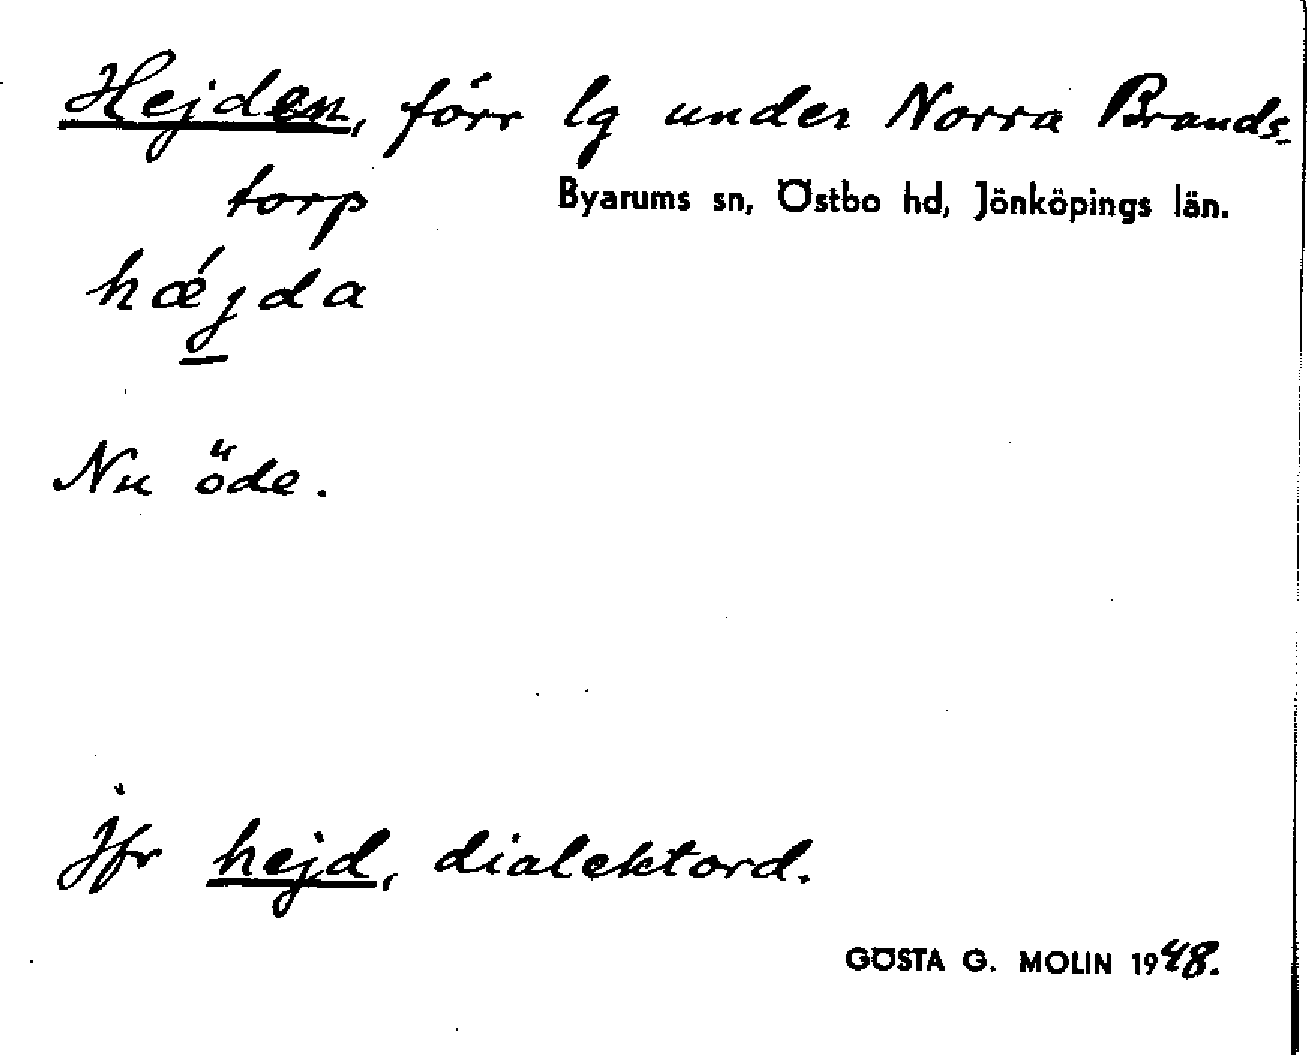 Hejden, förr lg under Norra Brands-
torp
Byarums sn, Östbo hd, Jönköpings län.
hǽjda
Nu öde.
Jfr hejd, dialektord.
GÖSTA G. MOLIN 1948.